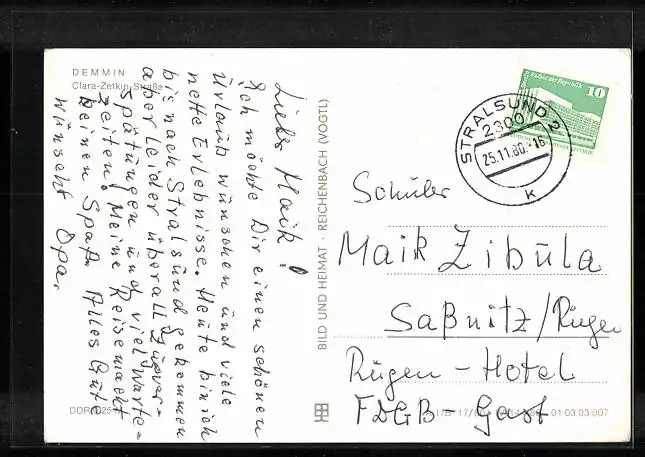 DEMMIN
Clara-Zetkin-Straße
Lieber Maik!
Ich möchte Dir einen schönen
Urlaub wünschen und viele
nette Erlebnisse. Heute bin ich
bis nach Stralsund gekommen
aber leider überall Zugver-
spätungen und viel Warte-
zeiten! Meine Reise macht
keinen Spaß. Alles Gute
wünscht Opa.
BILD UND HEIMAT · REICHENBACH (VOGTL)
Berlin, Palast der Republik
10
STRALSUND 2
2300
25.11.80.-16
K
Schüler
Maik Zibula
Saßnitz/Rügen
Rügen-Hotel
FDGB-Gast
01 03 03 007